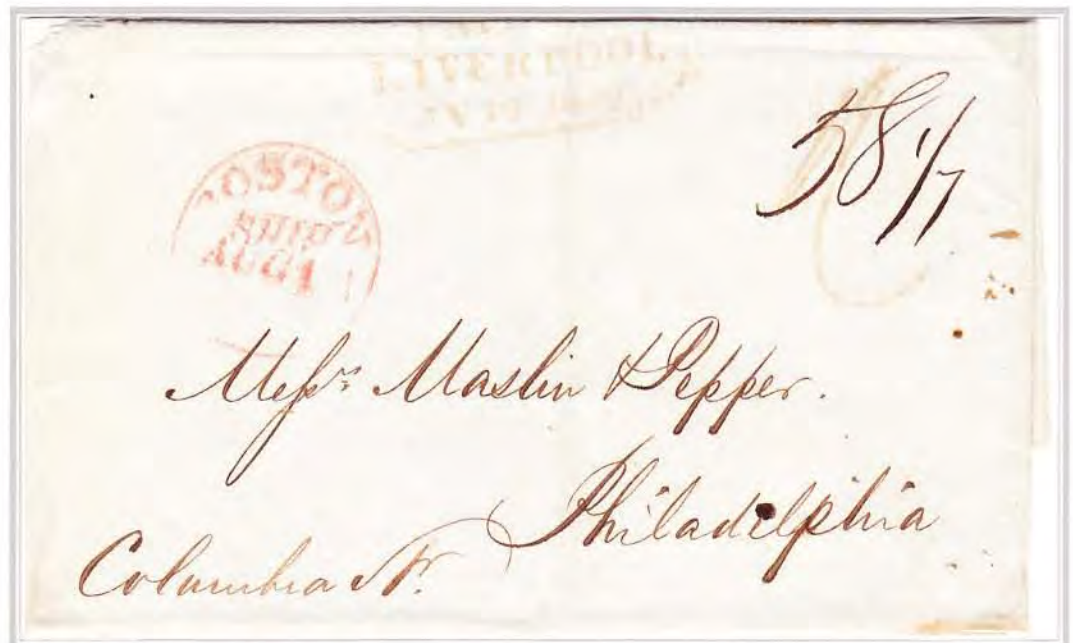 LIVERPOOL
58 1/7
BOSTON
SHIP
AUG 1
Messrs. Maslin & Pepper.
Philadelphia
Columbia Str.